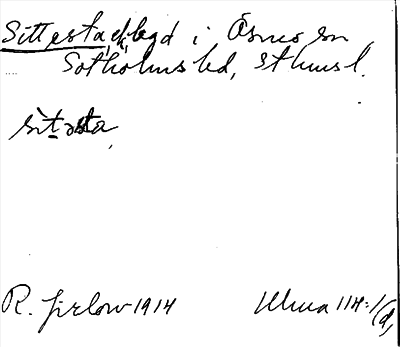 Sittesta, ekbegd i Ösmo sn
Sotholms hd, Sthmsl.
sìtəsta
R. Jirlow 1914
Ulma 114:1(d)